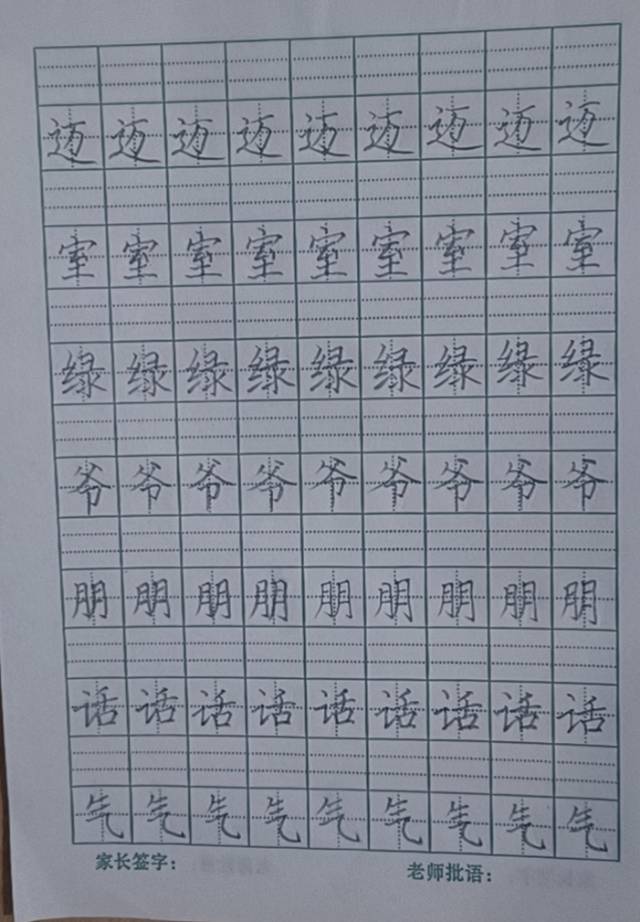 迈迈迈迈迈迈迈迈迈
室室室室室室室室室
绿绿绿绿绿绿绿绿绿
爷爷爷爷爷爷爷爷爷
朋朋朋朋朋朋朋朋朋
话话话话话话话话话
气气气气气气气气气
家长签字: 老师批语: